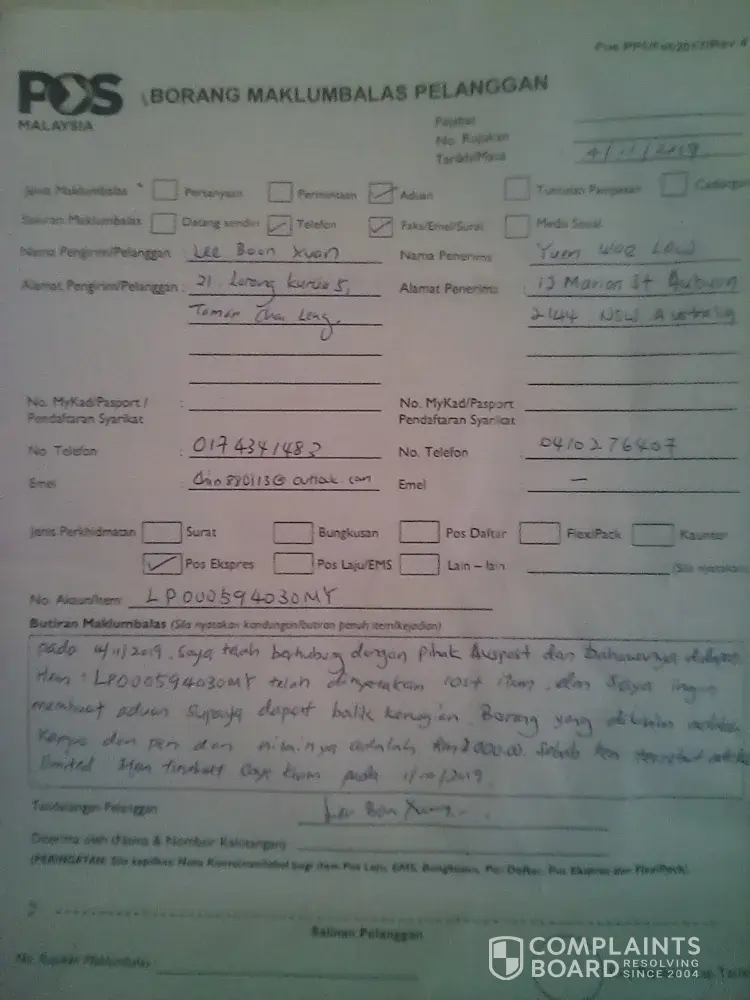 POS
MALAYSIA
BORANG MAKLUMBALAS PELANGGAN
Pejabat
No. Rujukan
Tarikh/Masa 4/11/2019
Jenis Maklumbalas Pertanyaan Permintaan Aduan Tuntutan Pampasan Cadangan
Saluran Maklumbalas Datang sendiri Telefon Faks/Emel/Surat Media Sosial
Nama Pengirim/Pelanggan : Lee Boon Xuan Nama Penerima Yuen LOW
Alamat Pengirim/Pelanggan : 21 Lorong 5, Alamat Penerima : 13 Marion St Auburn
Taman Chai Leng. 2144 NSW Australia
No. MyKad/Pasport / No. MyKad/Pasport
Pendaftaran Syarikat Pendaftaran Syarikat
No. Telefon : 0174341483 No. Telefon : 0410276407
Emel : @outlook.com Emel —
Jenis Perkhidmatan Surat Bungkusan Pos Daftar FlexiPack Kaunter
Pos Ekspres Pos Laju/EMS Lain – lain (Sila nyatakan)
No. Akaun/Item : LP000594030MY
Butiran Maklumbalas (Sila nyatakan kandungan/butiran penuh item/kejadian)
pada 4/11/2019, Saya telah berhubung dengan Pihak Auspost dan bahawanya
Item : LP000594030MY telah dinyatakan lost item, dan Saya ingin
membuat aduan supaya dapat balik kerugian. Barang yang dikirim adalah
dan pen dan nilainya adalah RM2000.00. Sebab pen tersebut adalah
limited. Item tersebut Saya kirim pada 1/10/2019.
Tandatangan Pelanggan
Diterima oleh (Nama & Nombor Kakitangan)
(PERINGATAN: Sila kepilkan Nota Konsainan/label bagi item Pos Laju, EMS, Bungkusan, Pos Daftar, Pos Ekspres dan FlexiPack).
Salinan Pelanggan
No. Rujukan Maklumbalas :
COMPLAINTS
BOARD RESOLVING
SINCE 2004